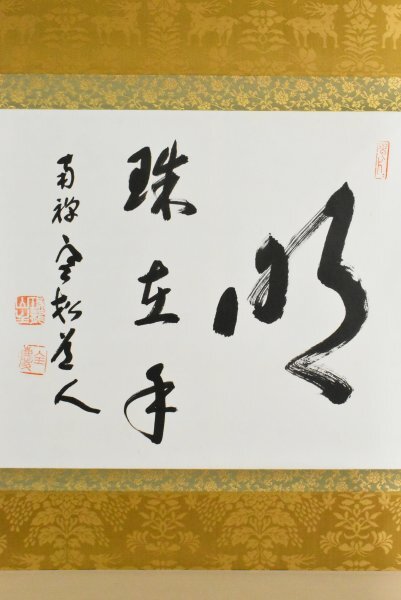 明
珠在手
南禅寒松道人